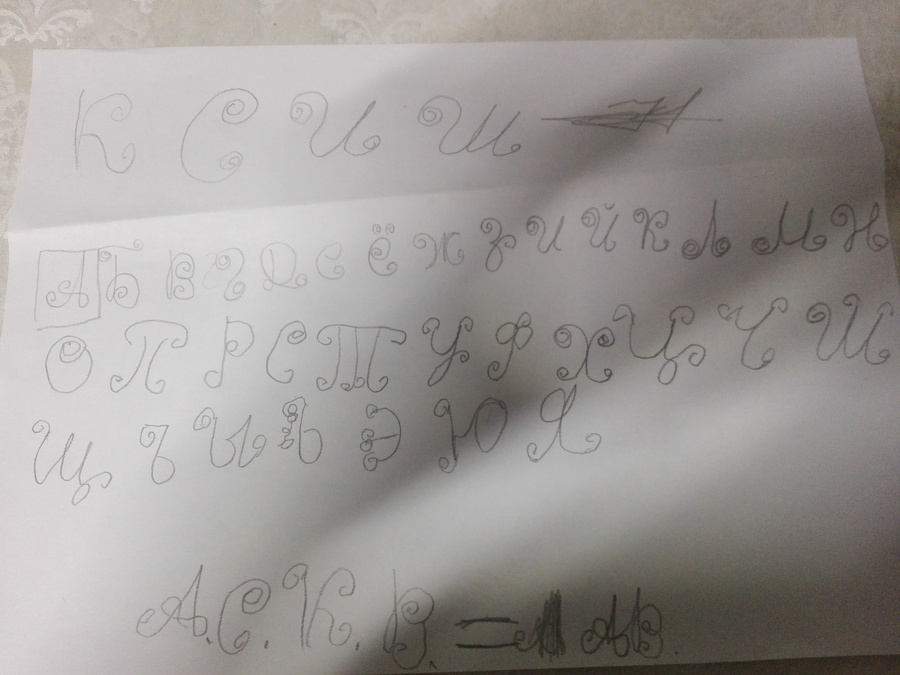 К С И Ш
А Б В Г Д Е Ё Ж З И Й К Л М Н
О П Р С Т У Ф Х Ц Ч Ш
Щ Ъ Ы Ь Э Ю Я
А.С.К.В = АВ.